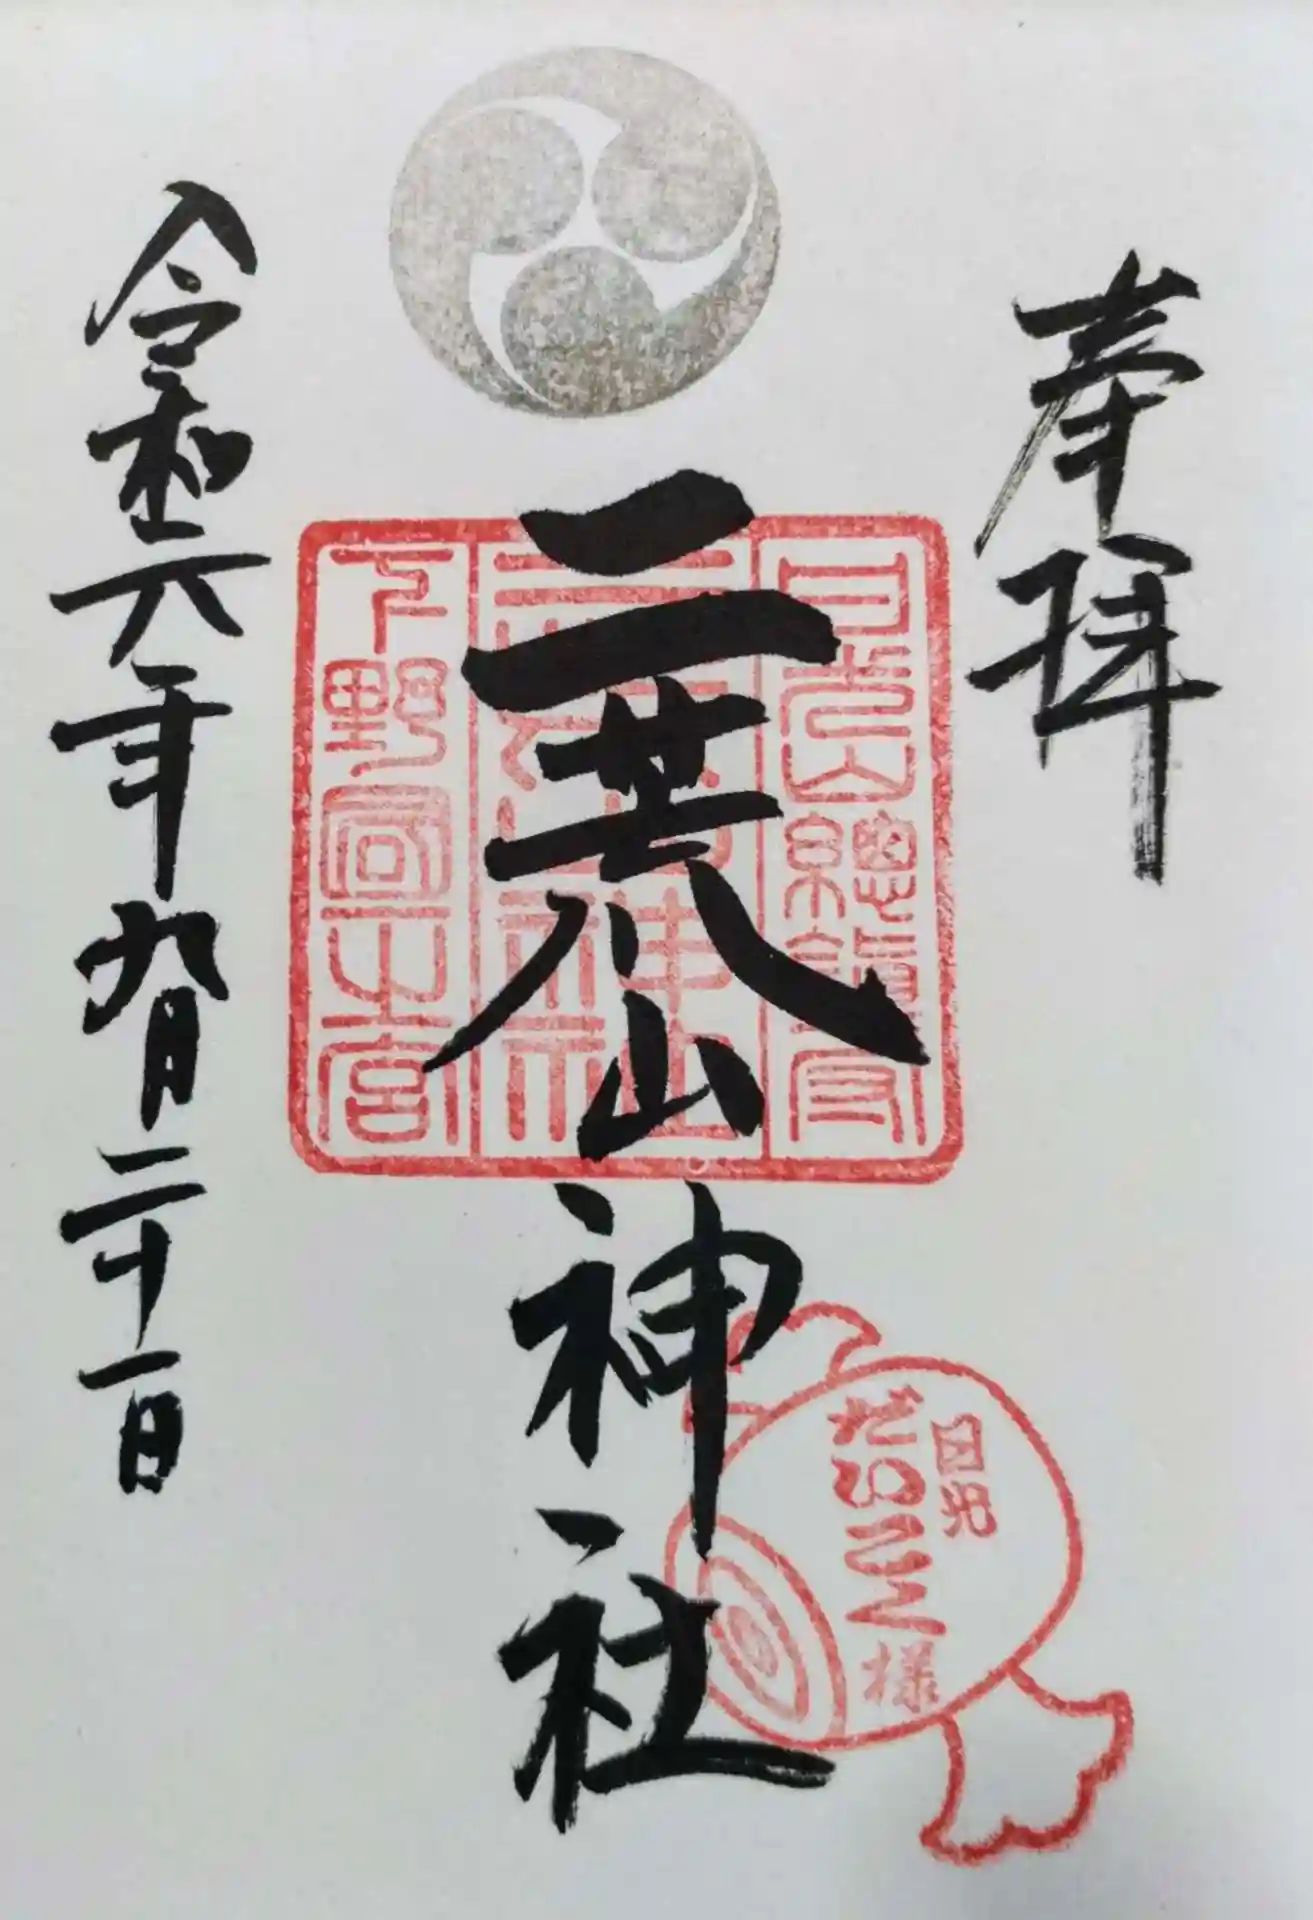 奉拝
日光山總鎮守
二荒山神社
下野國一之宮
二荒山神社
日光
だいこく様
令和六年九月二十一日